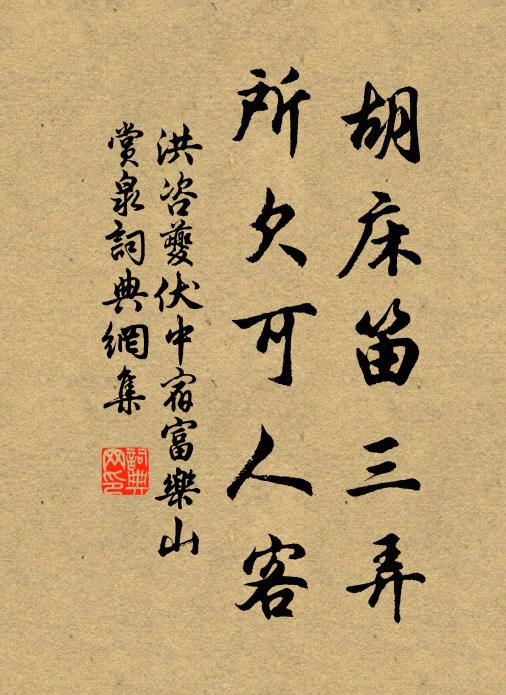 胡床笛三弄
所欠可人客
洪咨夔伏中宿富樂山
賞泉詞典網集
詞典網印